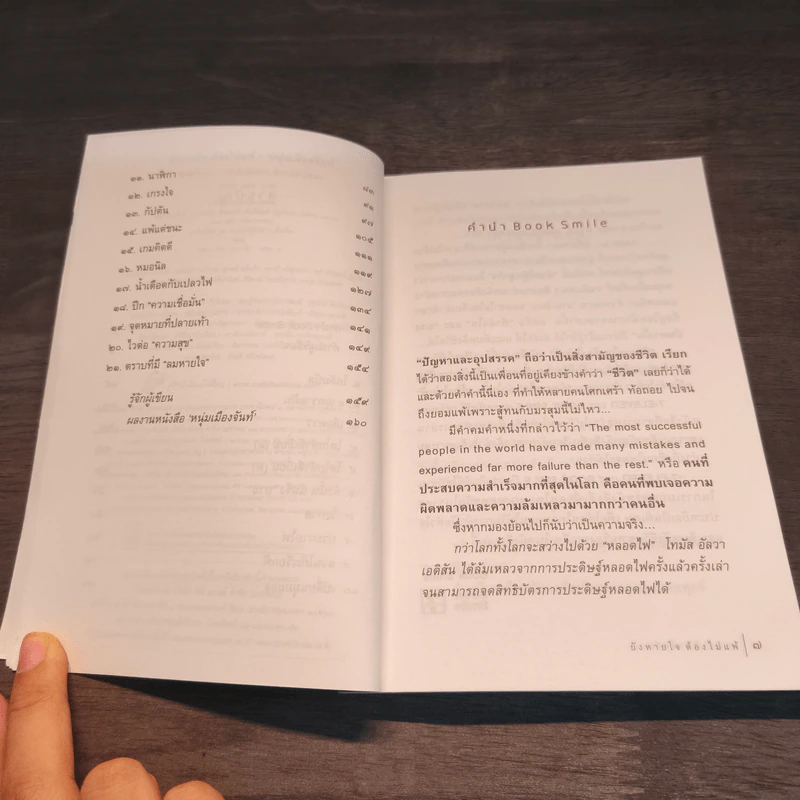 ๑๑. นาฬิกา ๘๓
๑๒. เกรงใจ ๙๑
๑๓. กัปตัน ๙๗
๑๔. แพ้แต่ชนะ ๑๐๕
๑๕. เกมคิดดี ๑๑๑
๑๖. หมอนิล ๑๑๙
๑๗. น้ำเดือดกับเปลวไฟ ๑๒๗
๑๘. ปีก “ความเชื่อมั่น” ๑๓๔
๑๙. จุดหมายที่ปลายเท้า ๑๔๑
๒๐. ไวต่อ “ความสุข” ๑๔๙
๒๑. ตราบที่มี “ลมหายใจ” ๑๕๔
รู้จักผู้เขียน ๑๕๙
ผลงานหนังสือ ‘หนุ่มเมืองจันท์’ ๑๖๐
คำนำ Book Smile
“ปัญหาและอุปสรรค” ถือว่าเป็นสิ่งสามัญของชีวิต เรียก
ได้ว่าสองสิ่งนี้เป็นเพื่อนที่อยู่เคียงข้างคำว่า “ชีวิต” เลยก็ว่าได้
และด้วยคำคำนี้นี่เอง ที่ทำให้หลายคนโศกเศร้า ท้อถอย ไปจน
ถึงยอมแพ้เพราะสู้ทนกับมรสุมนี้ไม่ไหว...
มีคำคมคำหนึ่งที่กล่าวไว้ว่า “The most successful
people in the world have made many mistakes and
experienced far more failure than the rest.” หรือ คนที่
ประสบความสำเร็จมากที่สุดในโลก คือคนที่พบเจอความ
ผิดพลาดและความล้มเหลวมามากกว่าคนอื่น
ซึ่งหากมองย้อนไปก็นับว่าเป็นความจริง...
กว่าโลกทั้งโลกจะสว่างไปด้วย “หลอดไฟ” โทมัส อัลวา
เอดิสัน ได้ล้มเหลวจากการประดิษฐ์หลอดไฟครั้งแล้วครั้งเล่า
จนสามารถจดสิทธิบัตรการประดิษฐ์หลอดไฟได้
ยังหายใจ ต้องไม่แพ้ | ๗